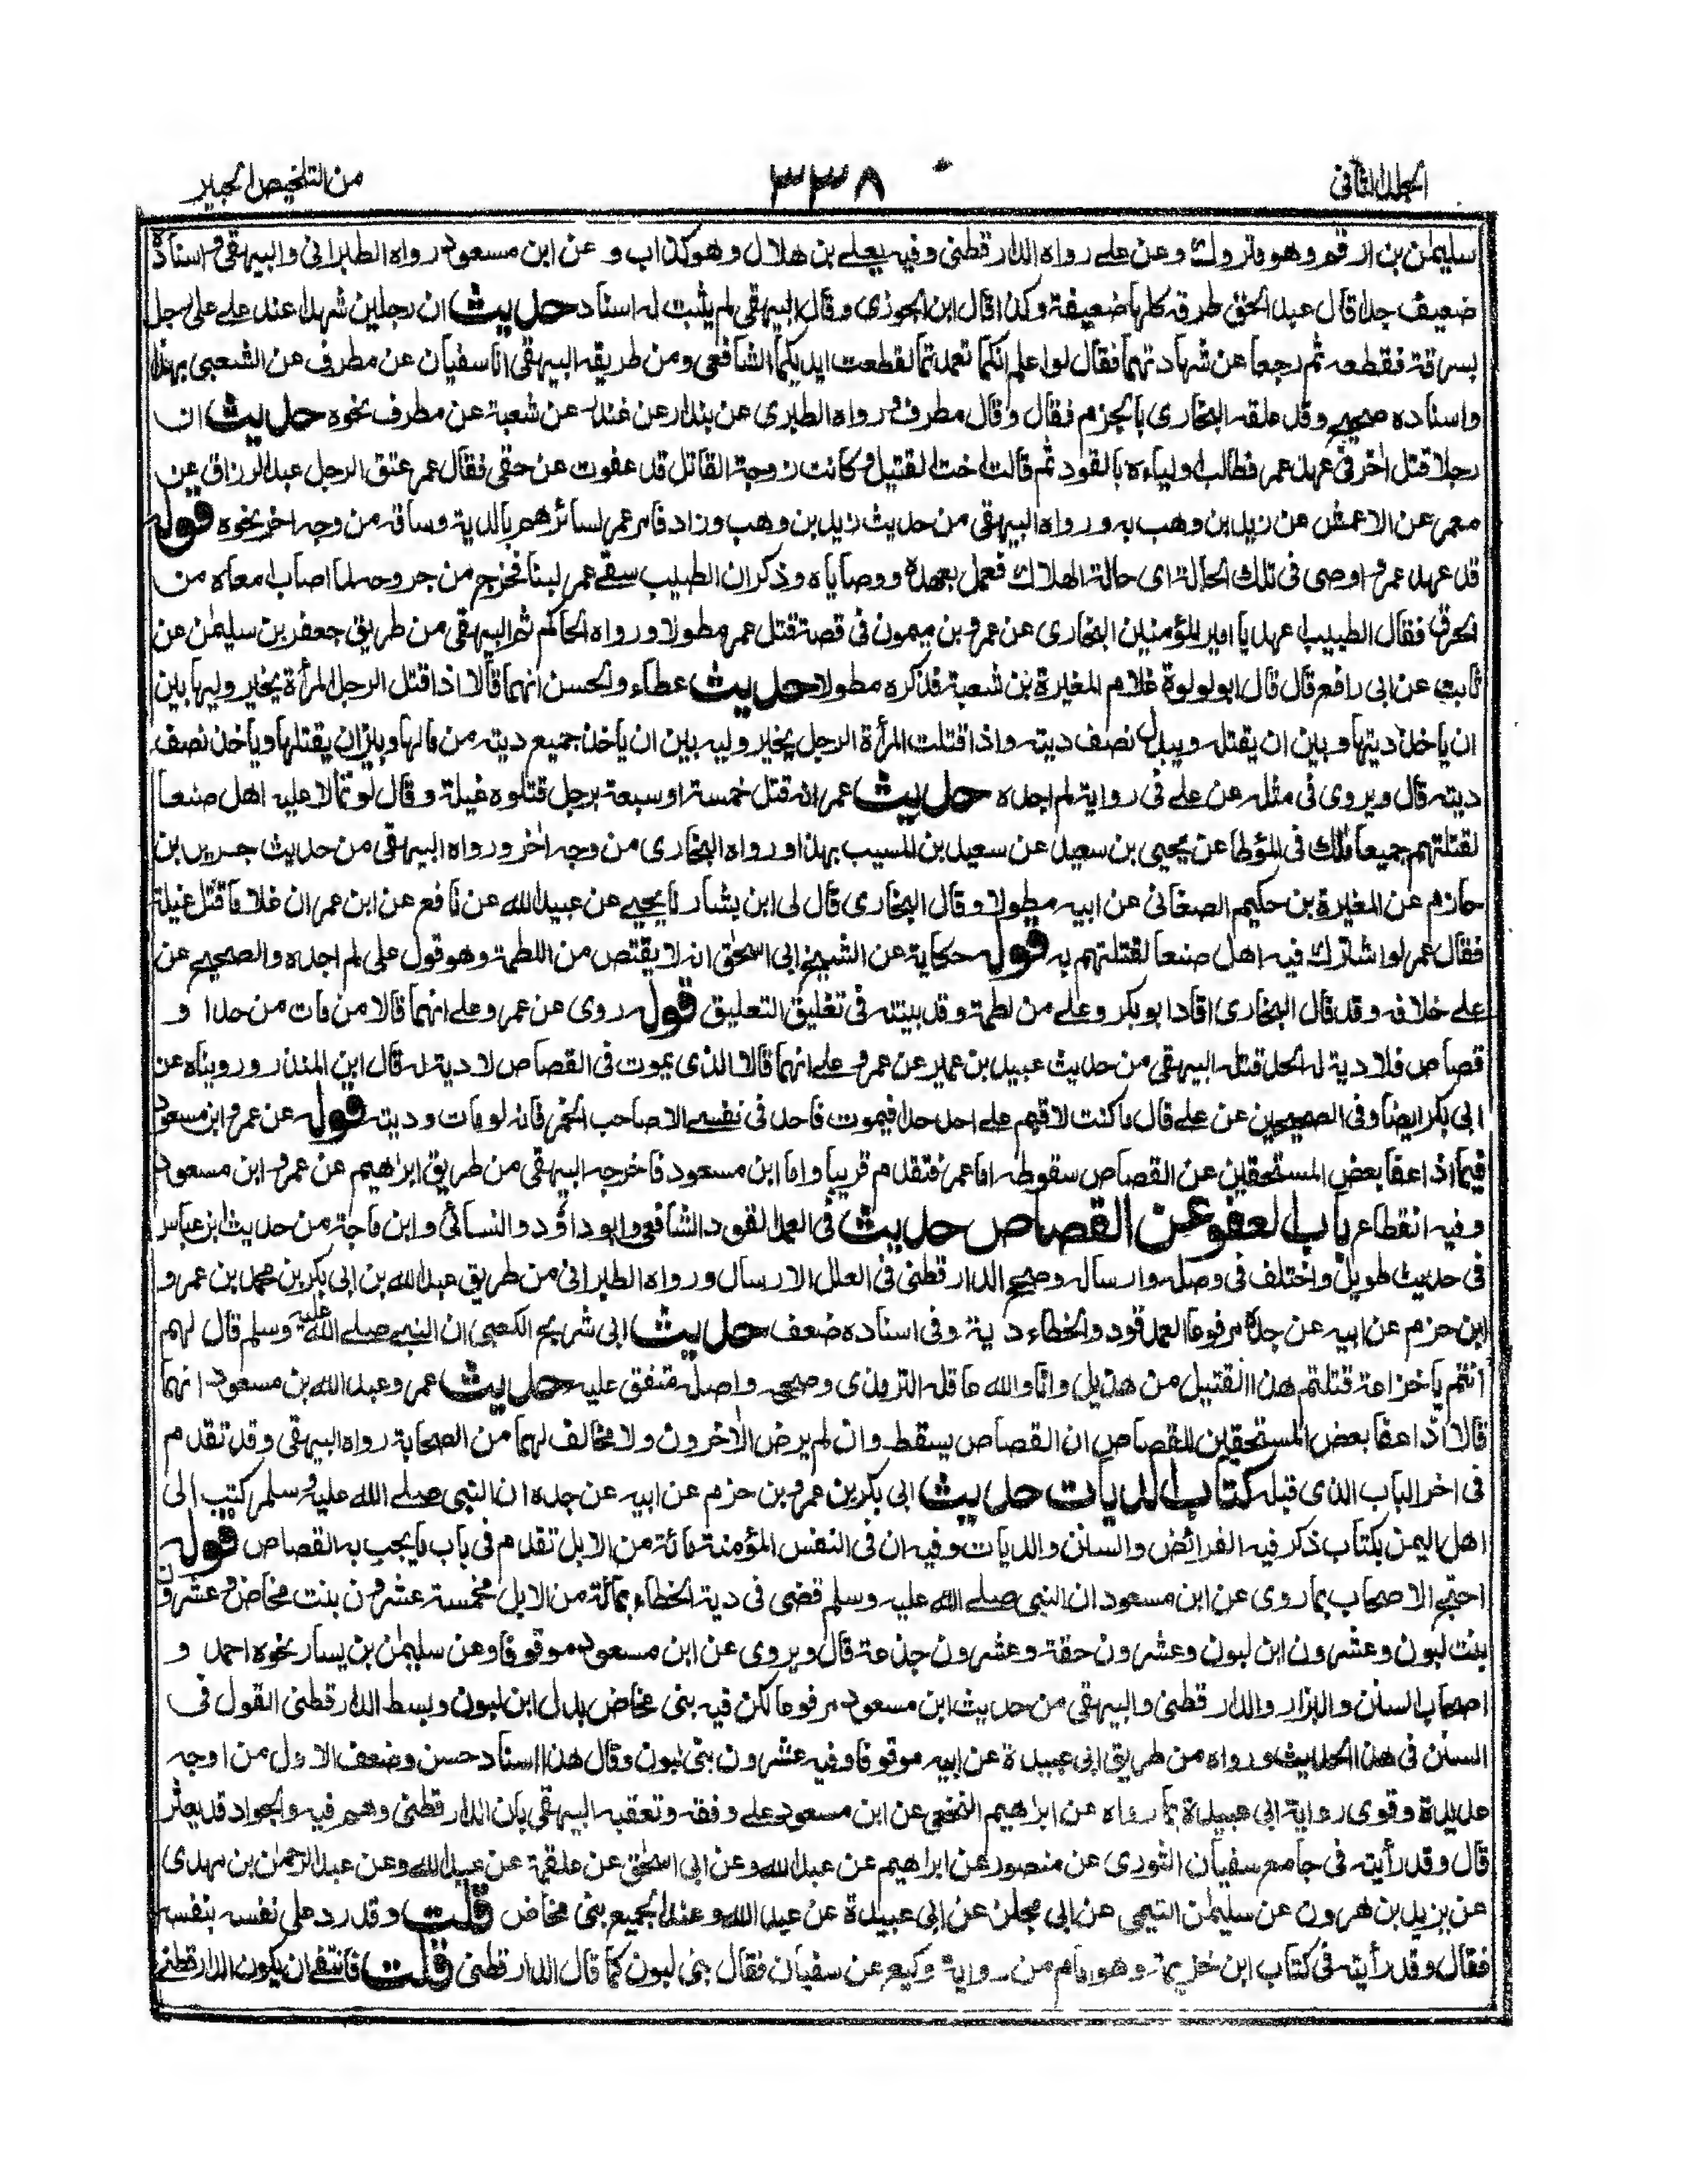 المجلد الثانی ٣٣٨ من التلخیص الحبیر
سلیمٰن بن ارقم وهو متروك وعن علے رواه الدارقطنی وفیه یعلے بن هلال وهو کذاب و عن ابن مسعود رواه الطبرانی والبیهقی واسناده
ضعیف جدا قال عبد الحق طرقه کلها ضعیفة وکذا قال ابن الجوزی وقال البیهقی لم یثبت له اسناد حدیث ان رجلین شهدا عند علے علی رجل
بسرقة فقطعه ثم رجعا عن شهادتهما فقال لو اعلم انکما تعمدتما لقطعت ایدیکما الشافعی ومن طریقه البیهقی انا سفیان عن مطرف عن الشعبی بهذا
واسناده صحیح وقد علقه البخاری بالجزم فقال وقال مطرف ورواه الطبری عن بندار عن غندر عن شعبة عن مطرف نحوه حدیث ان
رجلا قتل اٰخر فی عهد عمر فطالب اولیاءه بالقود ثم قالت اخت القتیل وکانت زوجة القاتل قد عفوت عن حقی فقال عمر عتق الرجل عبد الرزاق عن
معمر عن الاعمش عن زید بن وهب به ورواه البیهقی من حدیث زید بن وهب وزاد فامر عمر لسائرهم بالدیة وساقه من وجه اٰخر نحوه قوله
قد عهد عمر واوصی فی تلك الحالة ای حالة الهلاك فعمل بعهده ووصایاه وذکر ان الطبیب سقے عمر لبنا فخرج من جروحه لما اصاب امعاءه من
الحرق فقال الطبیب اعهد یا امیر المؤمنین البخاری عن عمرو بن میمون فی قصة قتل عمر مطولا ورواه الحاکم ثم البیهقی من طریق جعفر بن سلیمٰن عن
ثابت عن ابی رافع قال قال ابو لولوة غلام المغیرة بن شعبة فذکره مطولا حدیث عطاء والحسن انهما قالا اذا قتل الرجل المرأة یخیر ولیها بین
ان یاخذ دیتها وبین ان یقتله ویبذل نصف دیته واذا قتلت المرأة الرجل یخیر ولیه بین ان یاخذ جمیع دیته من مالها وبین ان یقتلها ویاخذ نصف
دیته قال ویروی فی مثله عن علے فی روایة لم اجده حدیث عمر انه قتل خمسة او سبعة برجل قتلوه غیلة وقال لو تمالا علیه اهل صنعا
لقتلتهم جمیعا مٰلك فی المؤطا عن یحیی بن سعید عن سعید بن المسیب بهذا ورواه البخاری من وجه اٰخر ورواه البیهقی من حدیث جریر بن
حازم عن المغیرة بن حکیم الصغانی عن ابیه مطولا وقال البخاری قال لی ابن بشار نا یحیے عن عبید الله عن نافع عن ابن عمر ان غلاما قتل غیلة
فقال عمر لو اشترك فیه اهل صنعا لقتلتهم به قوله حکایة عن الشیخ ابی اسحٰق انه لا یقتص من اللطمة وهو قول علی لم اجده والصحیح عن
علے خلافه وقد قال البخاری اقاد ابو بکر وعلے من لطمة وقد بینته فی تغلیق التعلیق قوله روی عن عمر وعلے انهما قالا من مات من حد او
قصاص فلا دیة له الحد قتله البیهقی من حدیث عبید بن عمیر عن عمر وعلے انهما قالا الذی یموت فی القصاص لا دیة له قال ابن المنذر ورویناه عن
ابی بکر ایضا وفی الصحیحین عن علے قال ما کنت لاقیم علے احد حدا فیموت فاجد فی نفسے الا صاحب الخمر فانه لو مات ودیته قوله عن عمر وابن مسعود
فیما اذا عفا بعض المستحقین عن القصاص سقوطه اما عمر فتقدم قریبا واما ابن مسعود فاخرجه البیهقی من طریق ابرٰهیم عن عمر وابن مسعود
وفیه انقطاع باب العفو عن القصاص حدیث فی العمد القود الشافعی وابو داؤد والنسائی وابن ماجة من حدیث ابن عباس
فی حدیث طویل واختلف فی وصله وارساله وصحح الدارقطنی فی العلل الارسال ورواه الطبرانی من طریق عبد الله بن ابی بکر بن محمد بن عمرو
ابن حزم عن ابیه عن جده مرفوعا العمد قود والخطاء دیة وفی اسناده ضعف حدیث ابی شریح الکعبی ان النبے صلے الله علیه وسلم قال لهم
أنتم یا خزاعة قتلتم هذا القتیل من هذیل وانا والله عاقله الترمذی وصححه واصله متفق علیه حدیث عمر وعبد الله بن مسعود انهما
قالا اذا عفا بعض المستحقین للقصاص ان القصاص یسقط وان لم یرض الاٰخرون ولا مخالف لهما من الصحابة رواه البیهقی وقد تقدم
فی اٰخر الباب الذی قبله کتاب الدیات حدیث ابی بکر بن عمرو بن حزم عن ابیه عن جده ان النبی صلے الله علیه وسلم کتب الی
اهل الیمن بکتاب ذکر فیه الفرائض والسنن والدیات وفیه ان فی النفس المؤمنة مائة من الابل تقدم فی باب ما یجب به القصاص قوله
احتج الاصحاب بما روی عن ابن مسعود ان النبی صلے الله علیه وسلم قضی فی دیة الخطاء بمائة من الابل مخمسة عشرون بنت مخاض وعشرون
بنت لبون وعشرون ابن لبون وعشرون حقة وعشرون جذعة قال ویروی عن ابن مسعود موقوفا وعن سلیمٰن بن یسار نحوه احمد و
اصحاب السنن والبزار والدارقطنی والبیهقی من حدیث ابن مسعود مرفوعا لکن فیه بنی مخاض بدل ابن لبون وبسط الدارقطنی القول فی
السنن فی هذا الحدیث ورواه من طریق ابی عبیدة عن ابیه موقوفا وفیه عشرون بنی لبون وقال هذا اسناد حسن وضعف الاول من اوجه
عدیدة وقوی روایة ابی عبیدة بما رواه عن ابرٰهیم النخعی عن ابن مسعود علے وفقه وتعقبه البیهقی بان الدارقطنی وهم فیه والجواد قد یعثر
قال وقد رأیته فی جامع سفیان الثوری عن منصور عن ابراهیم عن عبد الله وعن ابی اسحٰق عن علقمة عن عبد الله وعن عبد الرحمٰن بن مهدی
عن یزید بن هرون عن سلیمٰن التیمی عن ابی مجلز عن ابی عبیدة عن عبد الله وعند الجمیع بنی مخاض قلت وقد رد علی نفسه بنفسه
فقال وقد رأیته فی کتاب ابن خزیمة وهو امام من روایة وکیع عن سفیان فقال بنی لبون کما قال الدارقطنی قلت فانتفے ان یکون الدارقطنے